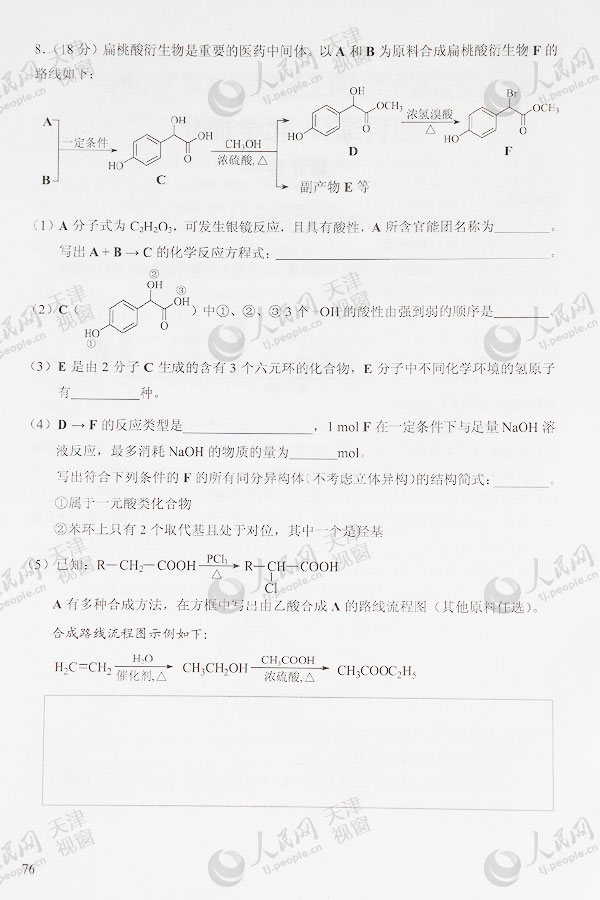 8.（18 分）扁桃酸衍生物是重要的医药中间体。以 A 和 B 为原料合成扁桃酸衍生物 F 的
路线如下：
A
B
一定条件
OH
OH
O
HO
C
CH₃OH
浓硫酸,△
OH
OCH₃
O
HO
D
浓氢溴酸
△
Br
OCH₃
O
HO
F
副产物 E 等
（1）A 分子式为 C₂H₂O₃，可发生银镜反应，且具有酸性，A 所含官能团名称为________。
写出 A + B → C 的化学反应方程式：________________________________________。
（2）C（
②
OH
③
OH
O
HO
①
）中①、②、③ 3 个 —OH 的酸性由强到弱的顺序是________。
（3）E 是由 2 分子 C 生成的含有 3 个六元环的化合物，E 分子中不同化学环境的氢原子
有__________种。
（4）D → F 的反应类型是__________________，1 mol F 在一定条件下与足量 NaOH 溶
液反应，最多消耗 NaOH 的物质的量为_______mol。
写出符合下列条件的 F 的所有同分异构体（不考虑立体异构）的结构简式：________。
①属于一元酸类化合物
②苯环上只有 2 个取代基且处于对位，其中一个是羟基
（5）已知：R—CH₂—COOH PCl₃ △ R—CH—COOH
Cl
A 有多种合成方法，在方框中写出由乙酸合成 A 的路线流程图（其他原料任选）。
合成路线流程图示例如下：
H₂C=CH₂ H₂O 催化剂,△ CH₃CH₂OH CH₃COOH 浓硫酸,△ CH₃COOC₂H₅
76
人民网 天津视窗
tj.people.cn